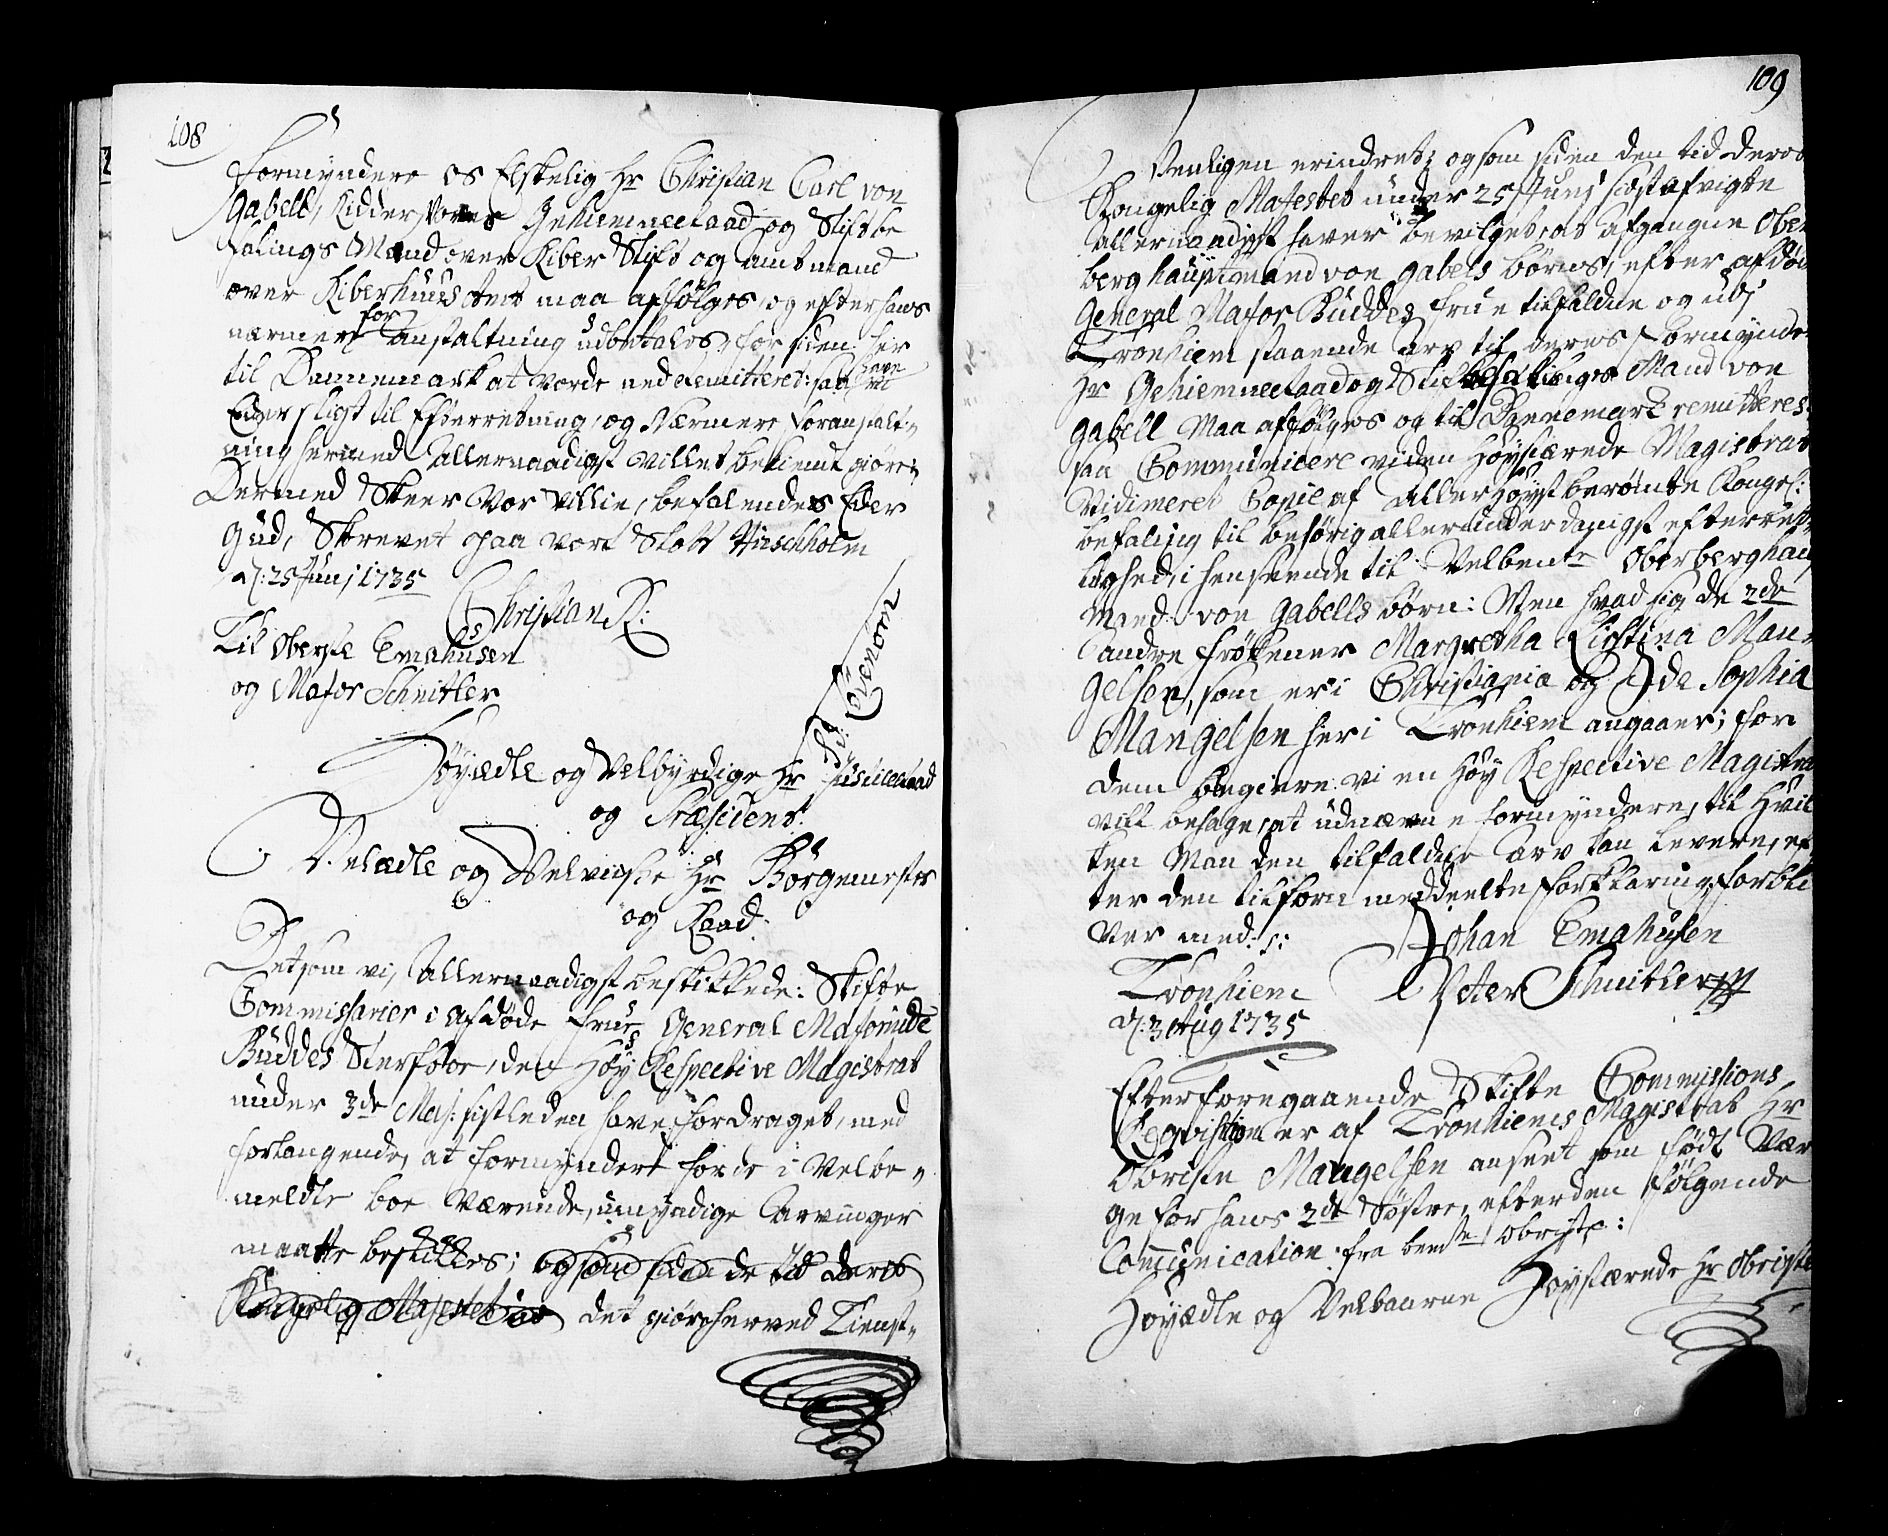 108
formyndere os Elskelig Hr Christian Carl von
Gabell, Ridder, Vores Gehiemneeraad og Stiftbe
falings Mand over Riber Stift og Amtmand
over Riberhuus dert maa afføljes, og efter hans
nærmere for anstaltning udbetales, for siden her
til Dannemark at vorde ned remitteret: saa have vi
Eder sligt til Efterretning, og Nærmere foranstalt-
ning hermed Allernaadigst villet bekiendt giøre;
Dermed Skeer Vor Villie, befalendes Eder
Gud, Skrevet paa vort Slott Hirschholm
d: 25 Junj 1735
Christian R:
Til Oberste Emahusen
og Major Schnitler
Høyædle og Velbyrdige Hr Justiceraad
og Præsident.
Velædle og Velviise Hr Börgemester
og Raad.
Det som vi, Allernaadigst beskikkede: Skifte
Commissarier i Afdøde Frue General Majorinde
Büddes Sterfboe, den Høy Respective Magistrat
under 3de Maj: sistleden have fordraget, med
forlangende, at formyndere for de i Velbe-
meldte boe Værende, umyndige Arvinger
maatte beskikkes; og som siden de tid deris
Kongelig Majestet har det giøres herved Tienst-
109
Venligen erindret; og som siden den tid deres
Kongelig Majestet under 25 Junj sidst afvigte
allernaadigst haver bevilget, at afgangne Ober
berghauptmand von Gabels børns, efter afdøde
General Major Büddes frue tilfaldne og udj
Tronhiem staaende Arv til deres Formynder
Hr Gehiemneeraad og Stiftbefalings Mand von
Gabell Maa afføljes og til Dannemark remitteres:
saa Communicere vi den Høystærede Magistrat
Vidimeret Copie af Allerhøyst berømte Kongel:
befaling til behørig allerunderdanigst efterrett
lighed, i henseende til Velbemte Oberberghaubt
Mand von Gabells børn: Men hvad sig de 2de
andre frøkener Margretha Kirstina Man-
gelsen, som er i Christiania og Ide Sophia
Mangelsen her i Tronhiem angaaer; for
dem begiere vi en Høy Respective Magistrat
vill behage, at udnævne formyndere, til Hvil
ken Man den tilfaldne Arv kan levere, ef
ter den tilforn meddeelte forklaring, forbli
ver med: s:
Johan Emahusen
Tronhiem Peter Schnitler
d: 3 Aug 1735
Efter foregaaende Skifte Commissions
Reqvisition er af Tronhiems Magistrat Hr
Obriste Mangelsen anseet som født Vær
ge for hans 2de Søstre, efter den følgende
Communication: fra bemte Obriste:
Høyædle og Velbaarne Høystærede Hr Obriste